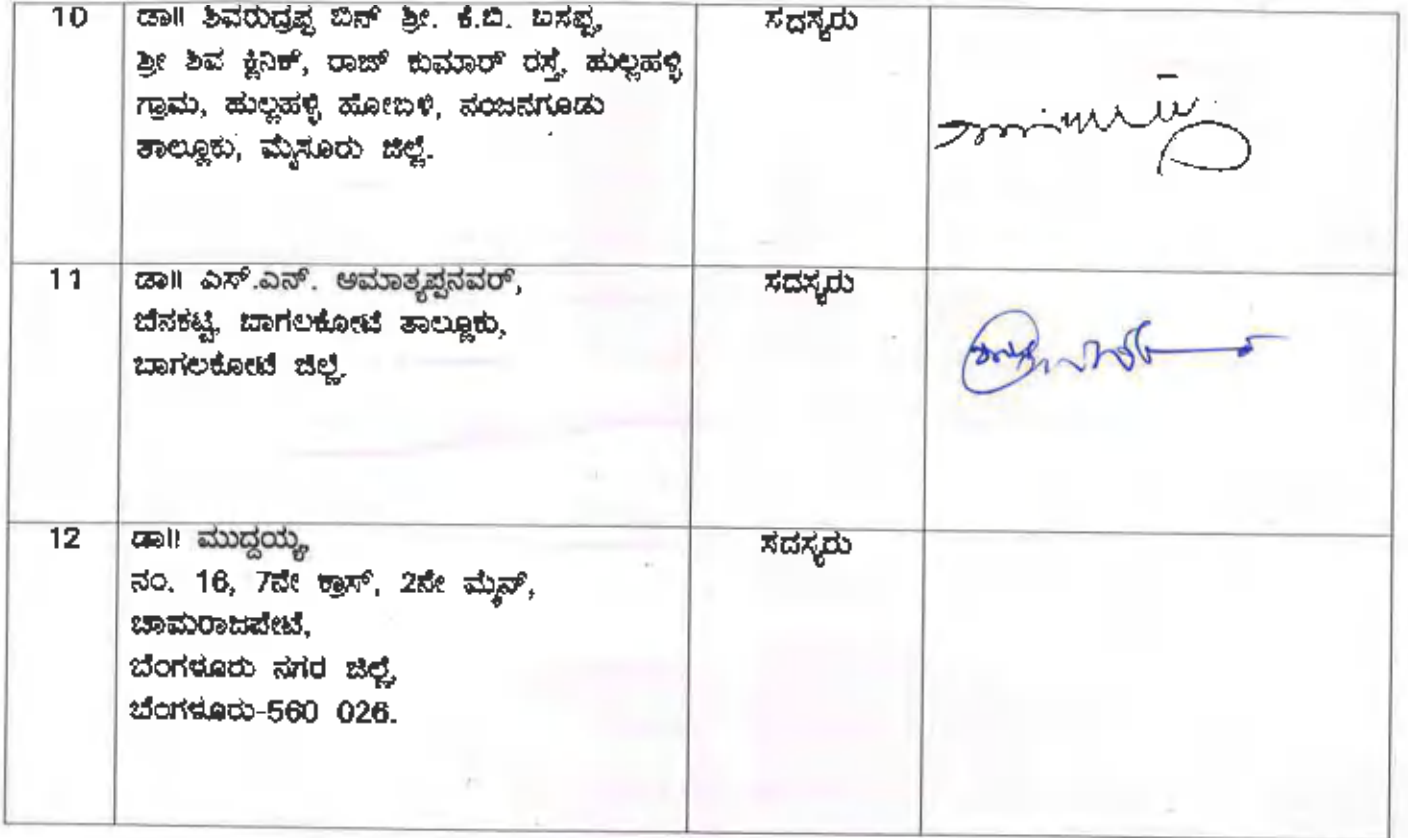 10 ಡಾ|| ಶಿವರುದ್ರಪ್ಪ ಬಿನ್ ಶ್ರೀ. ಕೆ.ಬಿ. ಬಸಪ್ಪ, ಸದಸ್ಯರು
ಶ್ರೀ ಶಿವ ಕ್ಲಿನಿಕ್, ರಾಜ್ ಕುಮಾರ್ ರಸ್ತೆ, ಹುಲ್ಲಹಳ್ಳಿ
ಗ್ರಾಮ, ಹುಲ್ಲಹಳ್ಳಿ ಹೋಬಳಿ, ನಂಜನಗೂಡು
ತಾಲ್ಲೂಕು, ಮೈಸೂರು ಜಿಲ್ಲೆ.
11 ಡಾ|| ಎಸ್.ಎನ್. ಅಮಾತ್ಯಪ್ಪನವರ್, ಸದಸ್ಯರು
ಬೆನಕಟ್ಟಿ, ಬಾಗಲಕೋಟೆ ತಾಲ್ಲೂಕು,
ಬಾಗಲಕೋಟೆ ಜಿಲ್ಲೆ.
12 ಡಾ|| ಮುದ್ದಯ್ಯ, ಸದಸ್ಯರು
ನಂ. 16, 7ನೇ ಕ್ರಾಸ್, 2ನೇ ಮೈನ್,
ಚಾಮರಾಜಪೇಟೆ,
ಬೆಂಗಳೂರು ನಗರ ಜಿಲ್ಲೆ,
ಬೆಂಗಳೂರು-560 026.